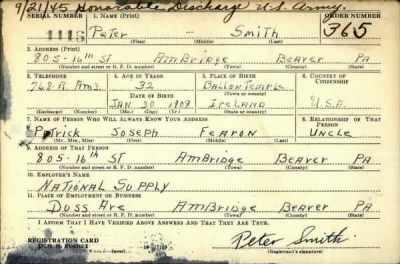 9/21/45 Honorable Discharge U.S. Army.
SERIAL NUMBER 1. NAME (Print) ORDER NUMBER
1116 Peter - Smith 365
(First) (Middle) (Last)
2. ADDRESS (Print)
805-16th ST AMBRIDGE BEAVER PA
(Number and street or R. F. D. number) (Town) (County) (State)
3. TELEPHONE 4. AGE IN YEARS 5. PLACE OF BIRTH 6. COUNTRY OF CITIZENSHIP
32
(Town or county)
DATE OF BIRTH
JAN 30 1908 IRELAND U.S.A.
(Exchange) (Number) (Mo.) (Day) (Yr.) (State or country)
7. NAME OF PERSON WHO WILL ALWAYS KNOW YOUR ADDRESS 8. RELATIONSHIP OF THAT PERSON
Patrick JOSEPH FEARON UNCLE
(Mr., Mrs., Miss) (First) (Middle) (Last)
9. ADDRESS OF THAT PERSON
805-16th ST AMBRIDGE BEAVER PA
(Number and street or R. F. D. number) (Town) (County) (State)
10. EMPLOYER'S NAME
NATIONAL SUPPLY
11. PLACE OF EMPLOYMENT OR BUSINESS
DUSS AVE AMBRIDGE BEAVER PA
(Number and street or R. F. D. number) (Town) (County) (State)
I AFFIRM THAT I HAVE VERIFIED ABOVE ANSWERS AND THAT THEY ARE TRUE.
REGISTRATION CARD
D. S. S. Form 1
Peter Smith
(Registrant's signature)